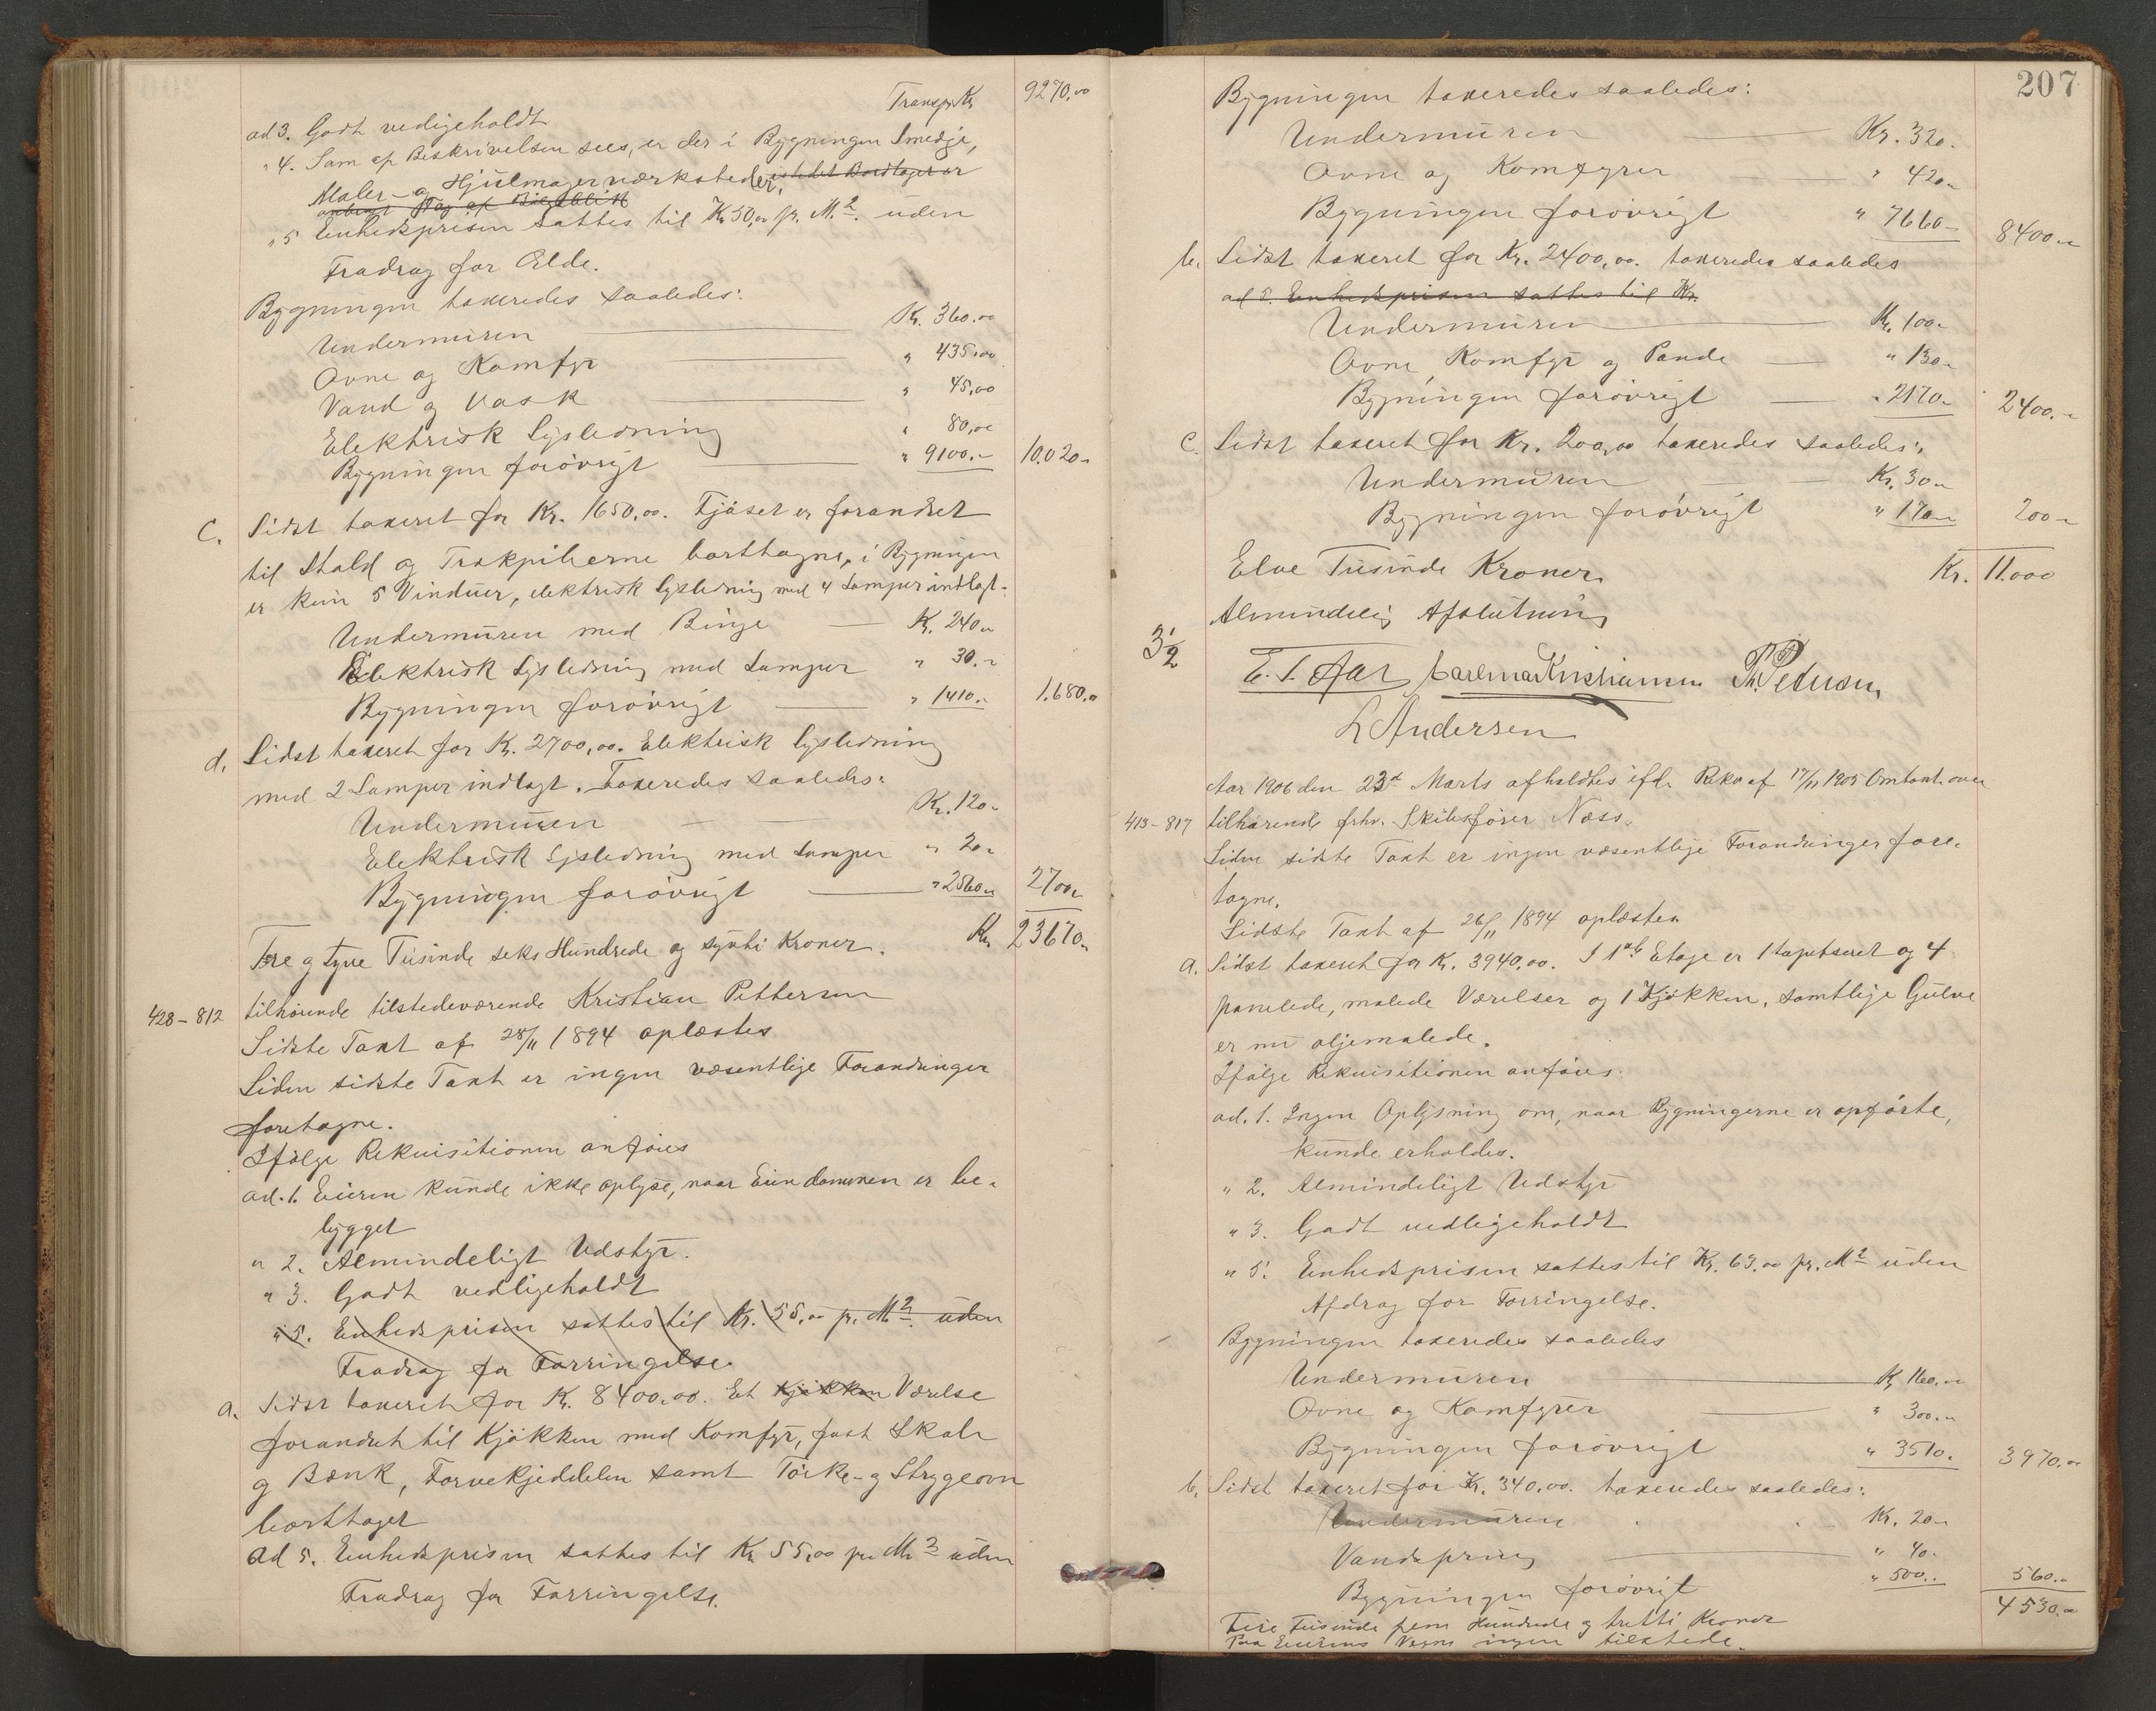 Transp. Kr 9270,00
ad 3. Godt vedligeholdt
" 4. Som af Beskrivelsen sees, er der i Bygningen Smedje,
Maler- og Hjulmagerværksteder, istedet Bordtag er
anbragt Tag af Bølgeblik
" 5 Enhedsprisen sattes til Kr 50,00 pr. M.2. uden
Fradrag for Ælde.
Bygningen taxeredes saaledes:
Undermuren Kr. 360.00
Ovne og Komfyr " 435,00
Vand og Vask " 45,00
Elektrisk Lysledning " 80,00
Bygningen forøvrigt " 9100.- 10.020-
C. Sidst taxeret for Kr. 1650,00. Fjøset er forandret
til Stald og Trækpiberne borttagne, i Bygningen
er kun 5 Vinduer, elektrisk Lysledning med 4 Lamper indlagt.
Undermuren med Binge Kr. 240-
Elektrisk Lysledning med Lamper " 30.-
Bygningen forøvrigt " 1410.- 1.680.-
d. Sidst taxeret for Kr. 2700,00. Elektrisk Lysledning
med 2 Lamper indlagt. Taxeredes saaledes:
Undermuren Kr. 120-
Elektrisk Lysledning med Lamper " 20-
Bygningen forøvrigt " 2560- 2700-
Tre og tyve Tusinde seks Hundrede og sytti Kroner. Kr. 23670-
428-812 tilhørende tilstedeværende Kristian Pettersen
Sidste Taxt af 28/11 1894 oplæstes
Siden sidste Taxt er ingen væsentlige Forandringer
foretagne.
Ifølge Rekvisitionen anføres
ad. 1. Eieren kunde ikke oplyse, naar Eiendommen er be-
bygget
" 2. Almindeligt Udstyr.
" 3. Godt vedligeholdt
" 5. Enhedsprisen sattes til Kr. 55,00 pr. M2. uden
Fradrag for Forringelse.
a. Sidst taxeret for Kr. 8400.00. Et Kjøkken Værelse
forandret til Kjøkken med Komfyr, fast Skab
og Bænk, Farvekjeddelen samt Tørke- og Strygeovn
borttaget
Ad 5. Enhedsprisen sattes til Kr 55,00 pr. M2 uden
Fradrag for Forringelse.
207
Bygningen taxeredes saaledes:
Undermuren Kr. 320.
Ovne og Komfyrer " 420-
Bygningen forøvrigt " 7660- 8400.-
b. Sidst taxeret for Kr. 2400,00. taxeredes saaledes
ad 5. Enhedsprisen sattes til Kr.
Undermuren Kr. 100-
Ovne, Komfyr og Pande " 130-
Bygningen forøvrigt " 2170- 2400.-
C. Sidst taxeret for Kr. 200,00 taxeredes saaledes:
Undermuren Kr. 30-
Bygningen forøvrigt " 170- 200-
Elve Tusinde Kroner. Kr. 11.000
Almindelig Afslutning
3 1/2
E. T. Aas Carl Kristiansen Th. Petersen
L Andersen
Aar 1906 den 23d Marts afholdtes ifl. Rekv af 17/11 1905 Omtaxt. over
413-817 tilhørende frhv. Skibsfører Næss.
Siden sidste Taxt er ingen væsentlige Forandringer fore-
tagne.
Sidste Taxt af 26/11 1894 oplæstes
a. Sidst taxeret for Kr. 3940,00. I 1ste Etage er 1 tapetseret og 4
panelede, malede Værelser og 1 Kjøkken, samtlige Gulve
er nu oljemalede.
Ifølge Rekvisitionen anføres:
ad. 1. Ingen Oplysning om, naar Bygningerne er opførte,
kunde erholdes.
" 2. Almindeligt Udstyr
" 3. Godt vedligeholdt
" 5. Enhedsprisen sattes til Kr. 63.00 pr. M2 uden
Afdrag for Forringelse.
Bygningen taxeredes saaledes
Undermuren Kr 160.-
Ovne og Komfyrer " 300.-
Bygningen forøvrigt " 3510. 3970.-
b. Sidst taxeret for Kr. 340.00. taxeredes saaledes:
Undermuren Kr. 20-
Vandspring " 40.
Bygningen forøvrigt " 500.- 560.-
4530.-
Fire Tusinde fem Hundrede og tretti Kroner
Paa Eierens Vegne ingen tilstede.